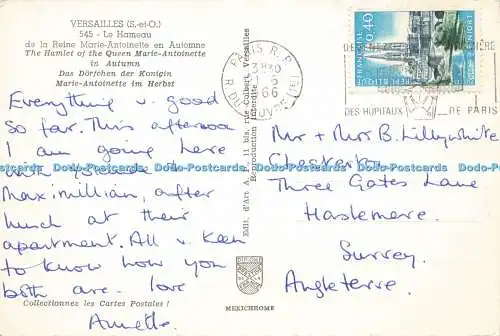 VERSAILLES (S.-et-O.)
545 - Le Hameau
de la Reine Marie-Antoinette en Automne
The Hamlet of the Queen Marie-Antoinette
in Autumn
Das Dörfchen der Konigin
Marie-Antoinette im Herbst
Everything v. good
so far. This afternoon
I am going here
with
Maximilian, after
lunch at their
apartment. All v. keen
to know how you
both are. love
Annette.
Collectionnez les Cartes Postales !
Edit. d'Art A. P. 11 bis, rue Colbert, Versailles
Reproduction Interdite
MEXICHROME
PARIS R.P.
R. DU LOUVRE (1er)
66
REPUBLIQUE FRANCAISE
0,40
DES HÔPITAUX DE PARIS
Mr + Mrs B. Lillywhite
Chesterton
Three Gates Lane
Haslemere
Surrey.
Angleterre.
Dodo-Postcards Dodo-Postcards Dodo-Postcards Dodo-Postcards